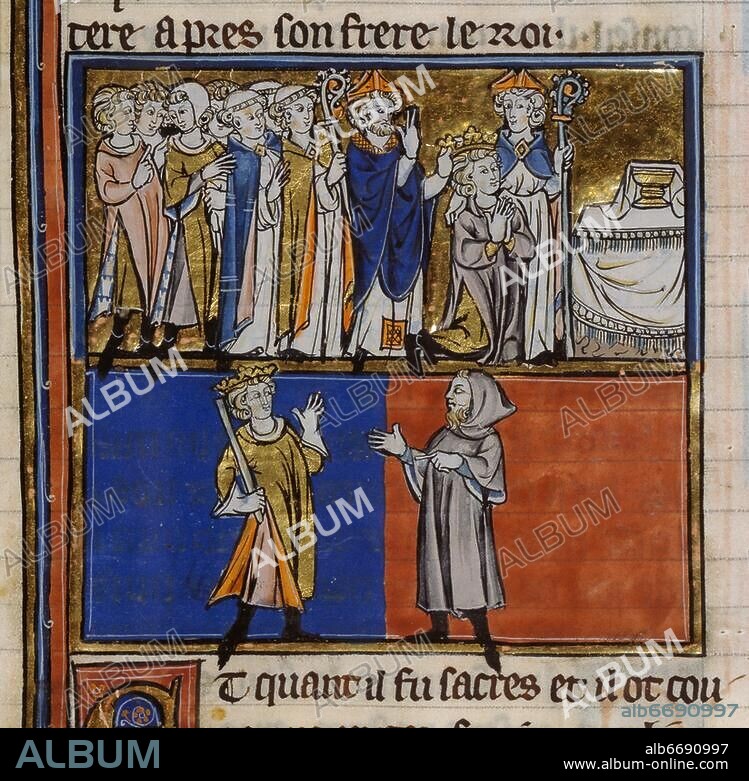 tere apres son frere le roi.
T quant il fu sacres et il ot cou
ALBUM
alb6690997
ALBUM
alb6690997
www.album-online.com